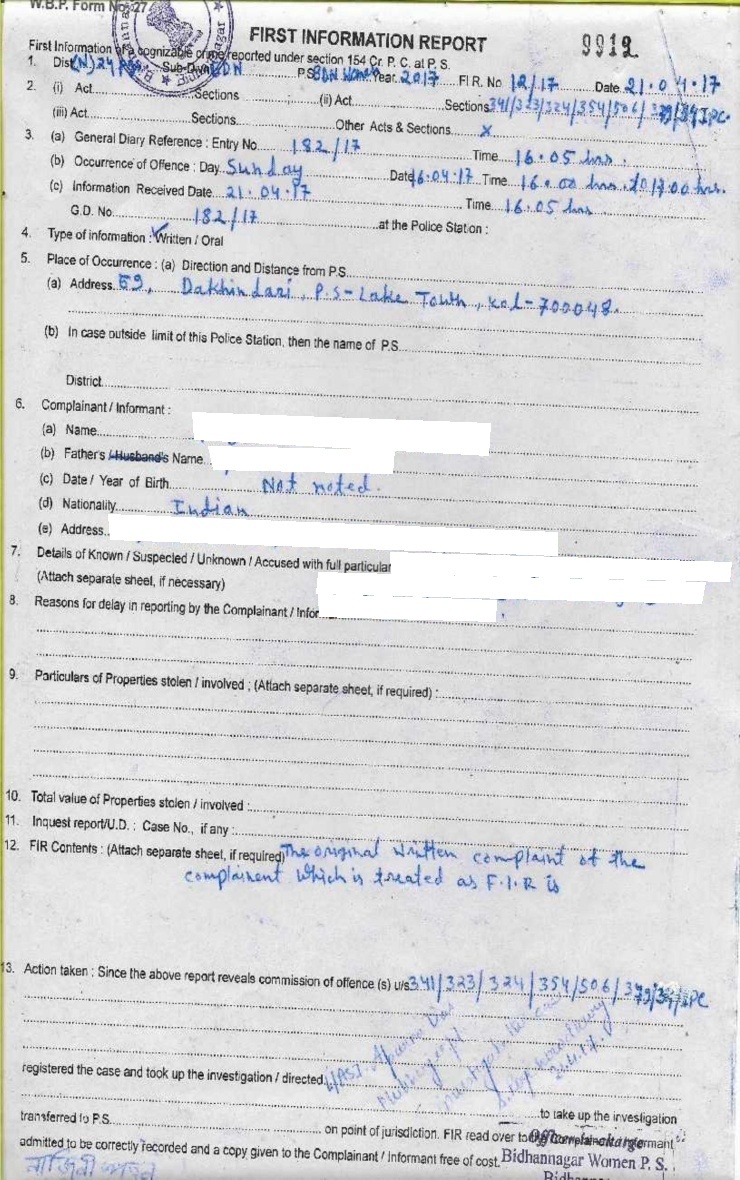 W.B.P. Form No. 27
FIRST INFORMATION REPORT
9912
First Information of a cognizable crime reported under section 154 Cr. P. C. at P. S.
1. Dist. (N) 24 PGS Sub-Divn. BDN P.S. BDN Women Year 2017 F.I.R. No 12/17 Date 21.04.17
2. (i) Act Sections (ii) Act Sections 341/323/324/354/506/379/34 IPC.
(iii) Act Sections Other Acts & Sections x
3. (a) General Diary Reference : Entry No 182/17 Time 16.05 hrs.
(b) Occurrence of Offence : Day Sunday Date 16.04.17 Time 16.00 hrs. to 17.00 hrs.
(c) Information Received Date 21.04.17 Time 16.05 hrs
G.D. No. 182/17 at the Police Station :
4. Type of information : Written / Oral
5. Place of Occurrence : (a) Direction and Distance from P.S.
(a) Address 69, Dakhindari, P.S- Lake Town, Kol-700048.
(b) In case outside limit of this Police Station, then the name of P.S.
District
6. Complainant / Informant :
(a) Name
(b) Father's / Husband's Name
(c) Date / Year of Birth Not noted.
(d) Nationality Indian
(e) Address
7. Details of Known / Suspected / Unknown / Accused with full particular
(Attach separate sheet, if necessary)
8. Reasons for delay in reporting by the Complainant / Infor
9. Particulars of Properties stolen / involved ; (Attach separate sheet, if required) :
10. Total value of Properties stolen / involved :
11. Inquest report/U.D. : Case No., if any :
12. FIR Contents : (Attach separate sheet, if required) The original written complaint of the
complainent which is treated as F.I.R is
13. Action taken : Since the above report reveals commission of offence (s) u/s 341/323/324/354/506/379/34 IPC
registered the case and took up the investigation / directed L/ASI. Aparna Das
to take up the investigation
transferred to P.S. on point of jurisdiction. FIR read over to
Officer-in-charge
admitted to be correctly recorded and a copy given to the Complainant / Informant free of cost.
Bidhannagar Women P. S.